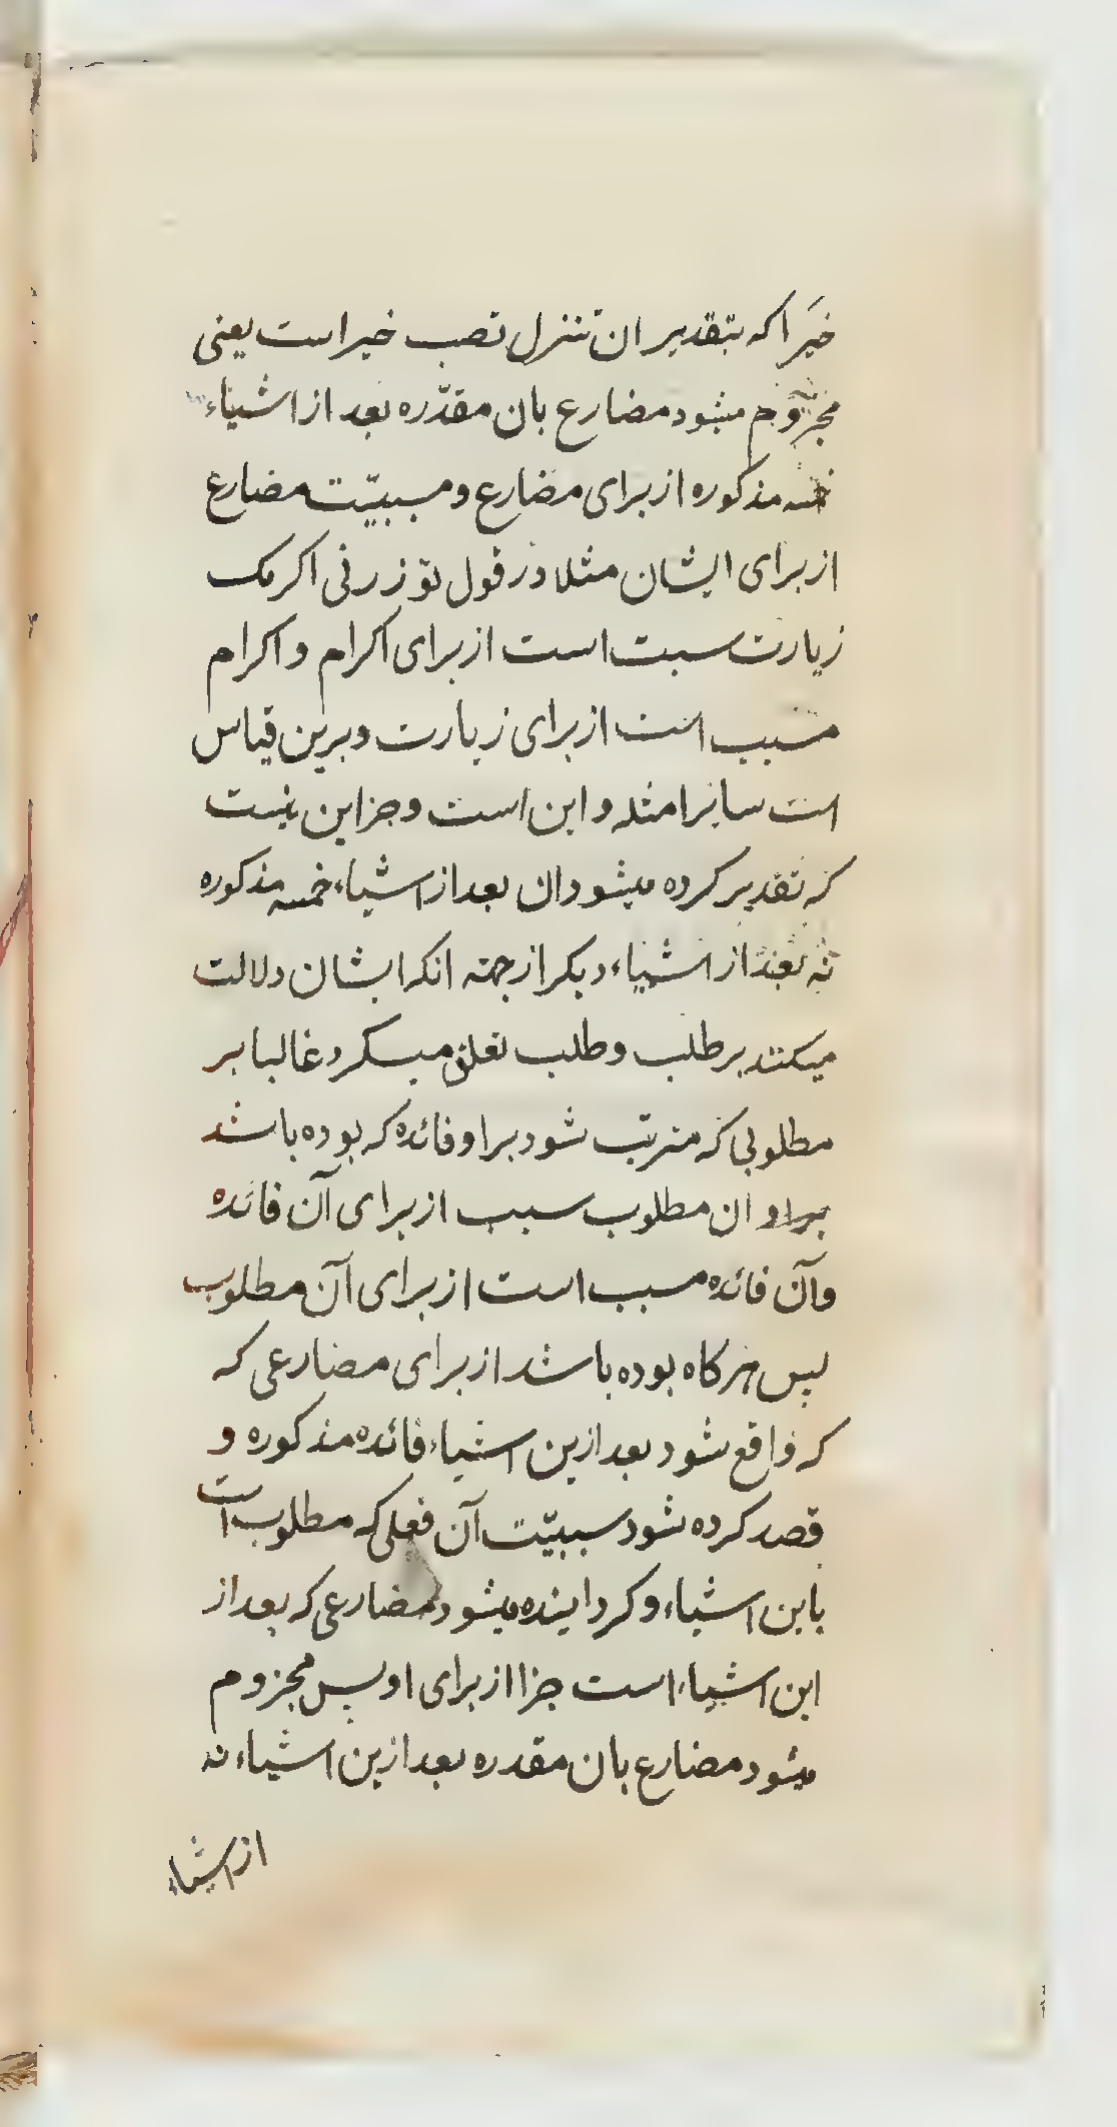 خیرا که بتقدیر ان تنزل تصب خیر است یعنی
مجزوم میشود مضارع بان مقدّره بعد از اشیاء
خمسه مذکوره از برای مضارع و مسببیّت مضارع
از برای ایشان مثلا در قول تو زرنی اکرمک
زیارت سبت است از برای اکرام و اکرام
مسبب است از برای زیارت و برین قیاس
است سایر امثله و این است و جز این نیست
که تقدیر کرده میشود ان بعد از اشیاء خمسه مذکوره
نه بعد از اشیاء دیکر از جهته انکه ایشان دلالت
میکنند بر طلب و طلب تعلق میکرد غالبا بر
مطلوبی که مترتب شود بر او فائده که بوده باشد
بر او ان مطلوب سبب از برای آن فائده
وآن فائده مسبب است از برای آن مطلوب
پس هر کاه بوده باشد از برای مضارعی که
که واقع شود بعد ازین اشیاء فائده مذکوره و
قصد کرده شود سببیّت آن فعلی که مطلوب است
باین اشیاء و کردانیده میشود مضارعی که بعد از
این اشیاء است جزا از برای او پس مجزوم
میشود مضارع بان مقدره بعد ازین اشیاء نه
از اشیاء